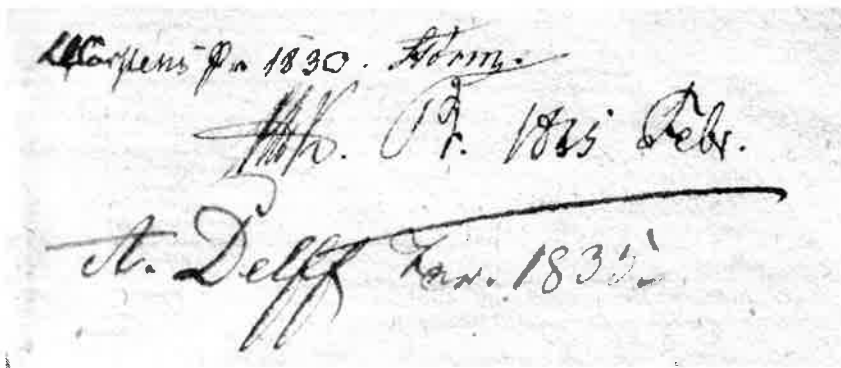 Carstens Pr 1830. Storm.
Pr. 1825 Febr.
A. Delff Jan. 1835.